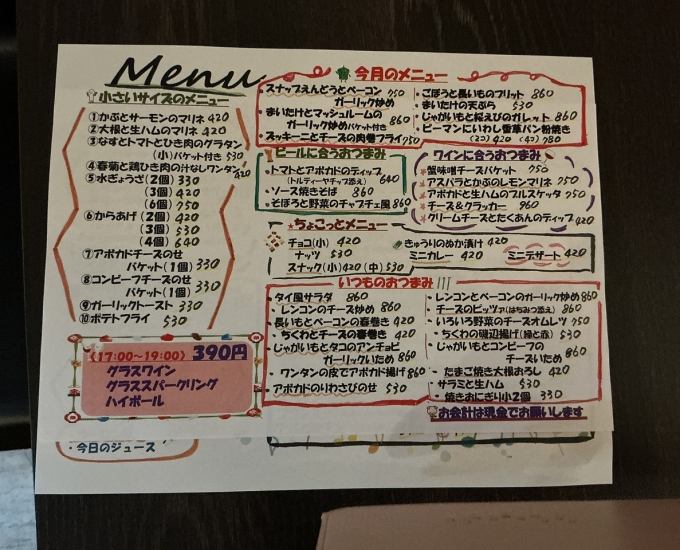 Menu
小さいサイズのメニュー
①かぶとサーモンのマリネ 420
②大根と生ハムのマリネ 420
③なすとトマトひき肉のグラタン
(小)バケット付き 530
④春菊と鶏ひき肉の汁なしワンタン 420
⑤水ぎょうざ(2個) 330
(3個) 420
(6個) 750
⑥からあげ(2個) 420
(3個) 530
(4個) 640
⑦アボカドチーズのせ
バケット(1個) 330
⑧コンビーフチーズのせ
バケット(1個) 330
⑨ガーリックトースト 330
⑩ポテトフライ 530
(17:00~19:00) 390円
グラスワイン
グラススパークリング
ハイボール
・今日のジュース
今月のメニュー
・スナップえんどうとベーコン 750
ガーリック炒め
・まいたけとマッシュルームの
ガーリック炒めバケット付き 860
・ズッキーニとチーズの肉巻フライ 750
・ごぼうと長いものフリット 860
・まいたけの天ぷら 530
・じゃがいもと桜えびのガレット 860
・ピーマンにいわし香草パン粉焼き
(2コ) 420 (4コ) 780
ビールに合うおつまみ
・トマトとアボカドのディップ
(トルティーヤチップ添え) 640
・ソース焼きそば 860
・そぼろと野菜のチャプチェ風 860
ワインに合うおつまみ
★蟹味噌チーズバケット 750
★アスパラとかぶのレモンマリネ 750
★アボカドと生ハムのブルスケッタ 750
★チーズ&クラッカー 960
★クリームチーズとたくあんのディップ 420
★ちょこっとメニュー
チョコ(小) 420
ナッツ 530
スナック(小)420(中)530
きゅうりのぬか漬け 420
ミニカレー 420
ミニデザート 420
いつものおつまみ
・タイ風サラダ 860
・レンコンのチーズ炒め 860
・長いもとベーコンの春巻き 420
・ちくわとチーズの春巻き 420
・じゃがいもとタコのアンチョビ
ガーリックいため 860
・ワンタンの皮でアボカド揚げ 860
・アボカドのりわさびのせ 530
・レンコンとベーコンのガーリック炒め 860
・チーズのピッツァ(はちみつ添え) 860
・いろいろ野菜のチーズオムレツ 750
・ちくわの磯辺揚げ(緑と赤) 530
・じゃがいもとコンビーフの
チーズいため 860
・たまご焼き大根おろし 420
・サラミと生ハム 530
・焼きおにぎり小2個 330
お会計は現金でお願いします